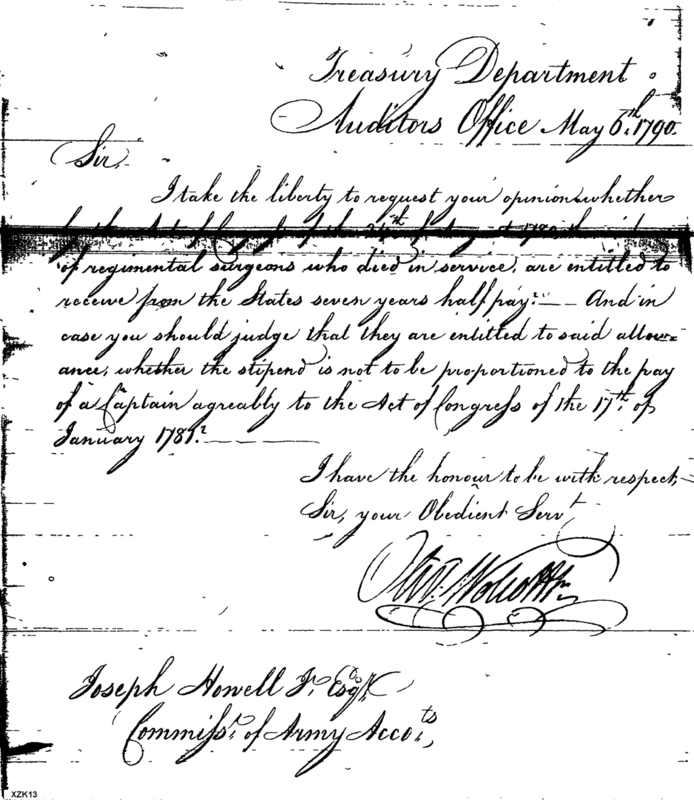 Treasury Department
Auditors Office May 6.th 1790.
Sir,
I take the liberty to request your opinion whether
by the Act of Congress of the 24th of August 1780 the widows
of regimental surgeons who died in service, are entitled to
receive from the States seven years half pay?—— And in
case you should judge that they are entitled to said allow=
ance, whether the stipend is not to be proportioned to the pay
of a Captain agreably to the Act of Congress of the 17th. of
January 1781.?
I have the honour to be with respect,
Sir, your Obedient Servt
Olivr. Wolcott Jn.
Joseph Howell Jr. Esqr.
Commissr. of Army Acco.ts,
XZK13